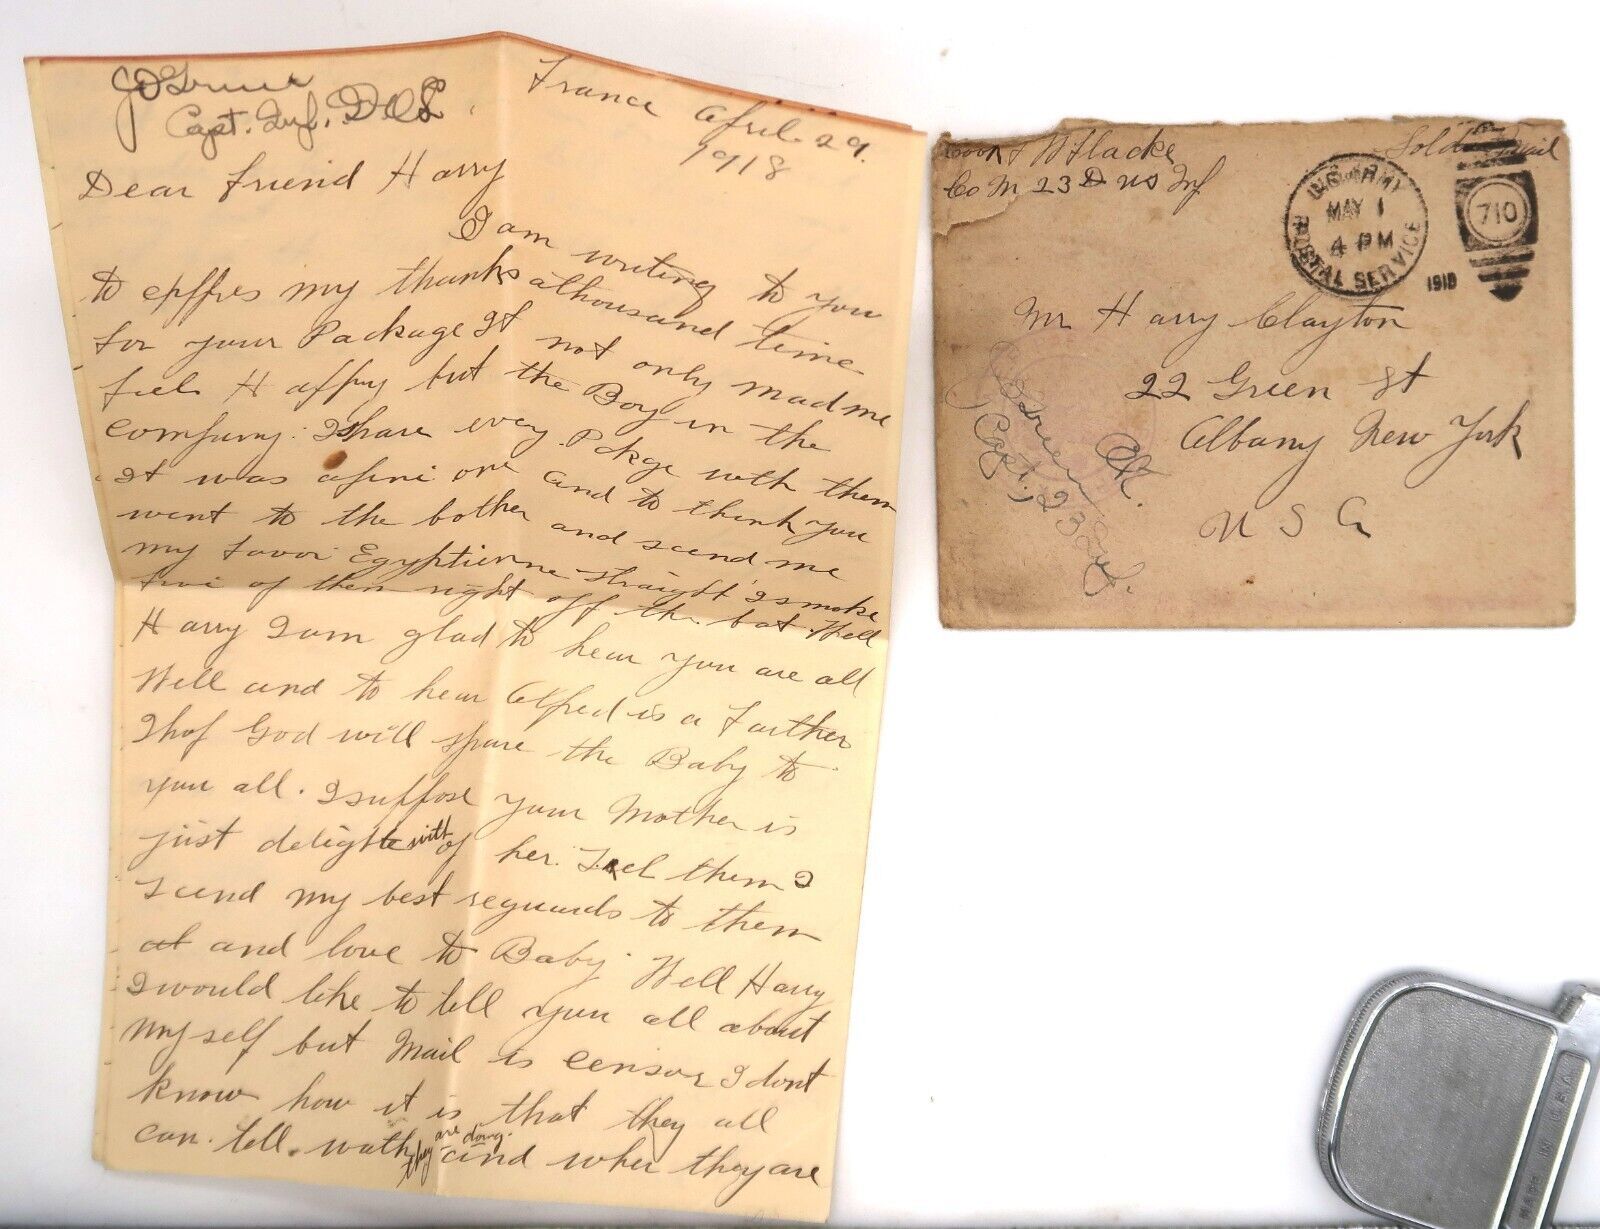 JO Green
Capt. Inf. D.O.L.
France April 29.
1918
Dear friend Harry
I am writing to you
to epffres my thanks athousand time
for your Package It not only mad me
feel Happy but the Boy in the
company. I share every Pckge with them
It was afine one and to think you
went to the bother and scend me
my favor Egyptienne straight I smoke
five of then right off the bat. Well
Harry I am glad to hear you are all
Well and to hear Alfred is a Farther
I hof God will spare the Baby to
you all. I suffose your Mother is
just delighte with of her. Tell them I
scend my best reguards to them
at and love to Baby. Well Harry
I would like to tell you all about
myself but Mail is censor I dont
know how it is that they all
can tell wath they are doing. and wher they are
Cook J W Flacke
Co M 23D US Inf
Soldier Mail
U.S. ARMY
POSTAL SERVICE
MAY 1
4 PM
1918
710
Mr Harry Clayton
22 Green St
Albany New York
U S A
OK.
JO Green
Capt., 23 Inf.
MADE IN U.S.A.